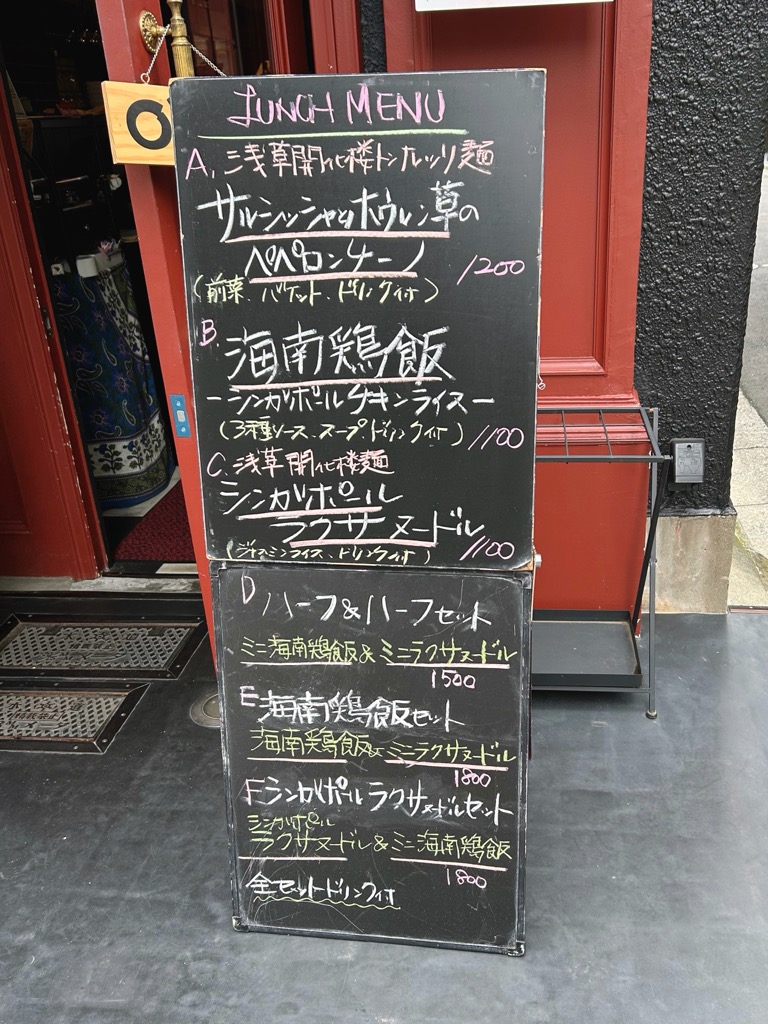 LUNCH MENU
A. 浅草開化楼トンナレッリ麺
サルシッシャとホウレン草の
ペペロンチーノ
1200
(前菜、バケット、ドリンク付)
B.
海南鶏飯
ーシンガポールチキンライスー
(3種ソース、スープ、ドリンク付)
1100
C. 浅草開化楼麺
シンガポール
ラクサヌードル
(ジャスミンライス、ドリンク付)
1100
D ハーフ&ハーフセット
ミニ海南鶏飯&ミニラクサヌードル
1500
E 海南鶏飯セット
海南鶏飯&ミニラクサヌードル
1800
F シンガポールラクサヌードルセット
シンガポール
ラクサヌードル&ミニ海南鶏飯
1800
全セットドリンク付